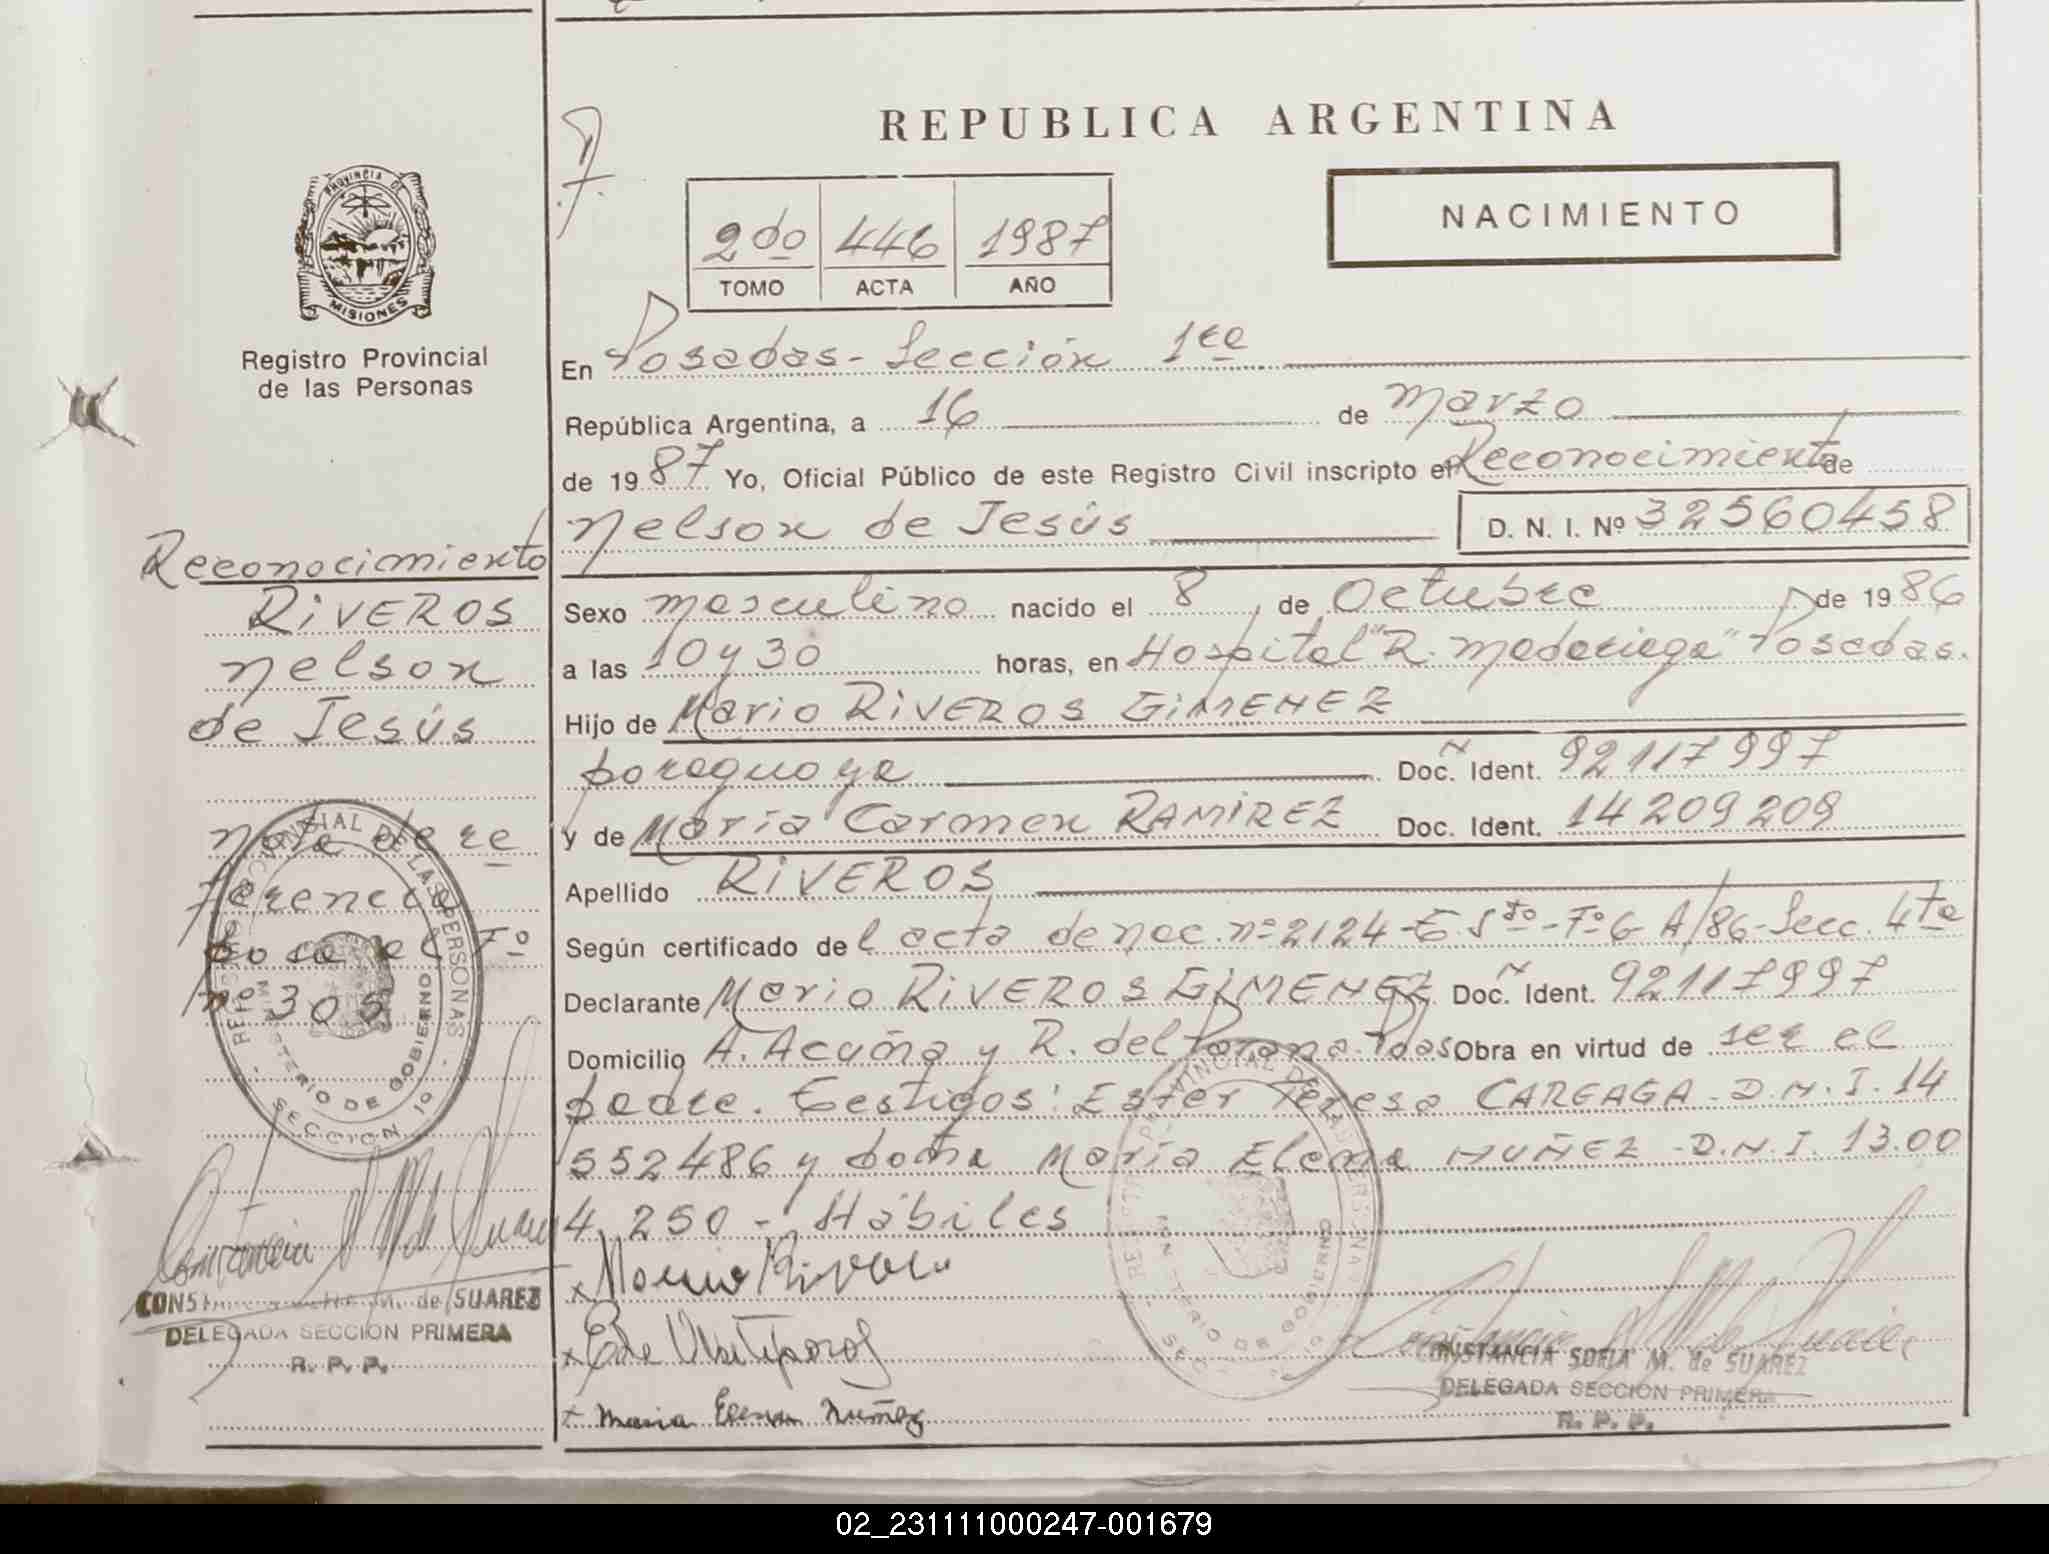 REPUBLICA ARGENTINA
NACIMIENTO
2do 446 1987
TOMO ACTA AÑO
PROVINCIA DE
MISIONES
Registro Provincial
de las Personas
En Posadas - Sección 1ra
República Argentina, a 16 de Marzo
de 1987 Yo, Oficial Público de este Registro Civil inscripto el Reconocimiento de
Nelson de Jesús D. N. I. Nº 32560458
Sexo masculino nacido el 8 de Octubre de 1986
a las 10 y 30 horas, en Hospital "R. Madariaga" Posadas.
Hijo de Mario RIVEROS GIMENEZ
paraguaya Doc. Ident. 92117997
y de María Carmen RAMIREZ Doc. Ident. 14209209
Apellido RIVEROS
Según certificado del acta de nac. nº 2124 - T. 5to - Fº 6 A/86 - Secc. 4ta
Declarante Mario RIVEROS GIMENEZ Doc. Ident. 92117997
Domicilio A. Acuña y R. del Parana - Pdas Obra en virtud de ser el
padre. Testigos: Ester Teresa CAREAGA - D.N.I. 14
552486 y doña María Elena NUÑEZ - D.N.I. 13.00
4.250 - Hábiles
Mario Rivero
Maria Elena Nuñez
CONSTANCIA SOFIA M. de SUAREZ
DELEGADA SECCION PRIMERA
R. P. P.
Reconocimiento
RIVEROS
Nelson
de Jesús
nota de re
ferencia
pasa el Fº
nº 305
REGISTRO PROVINCIAL DE LAS PERSONAS
MINISTERIO DE GOBIERNO
SECCION 1º
M. de SUAREZ
DELEGADA SECCION PRIMERA
R. P. P.
02_231111000247-001679